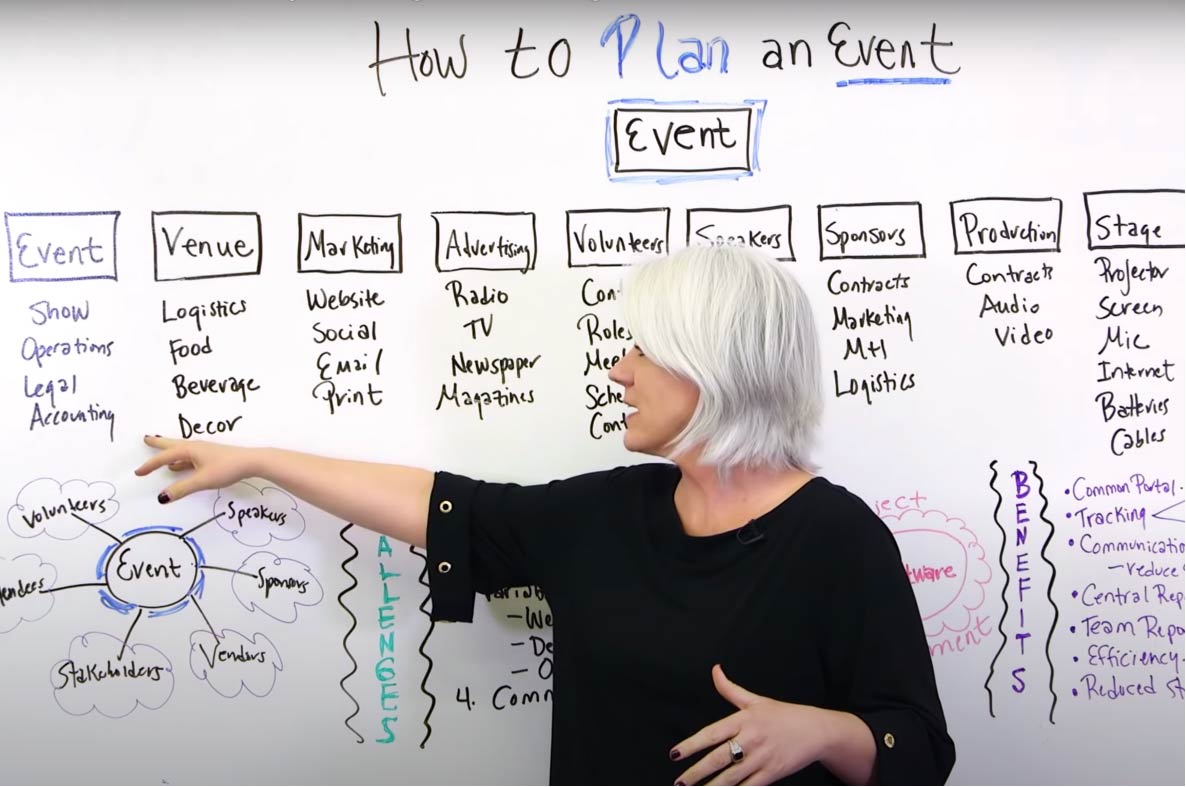 How to Plan an Event
Event
Event
Show
Operations
Legal
Accounting
Venue
Logistics
Food
Beverage
Decor
Marketing
Website
Social
Email
Print
Advertising
Radio
TV
Newspaper
Magazines
Volunteers
Roles
Speakers
Sponsors
Contracts
Marketing
Mtl
Logistics
Production
Contracts
Audio
Video
Stage
Projector
Screen
Mic
Internet
Batteries
Cables
Volunteers
Speakers
Event
Sponsors
Stakeholders
Vendors
4.
BENEFITS
• Common Portal
• Tracking
- reduce
• Central
• Team
• Efficiency
• Reduced